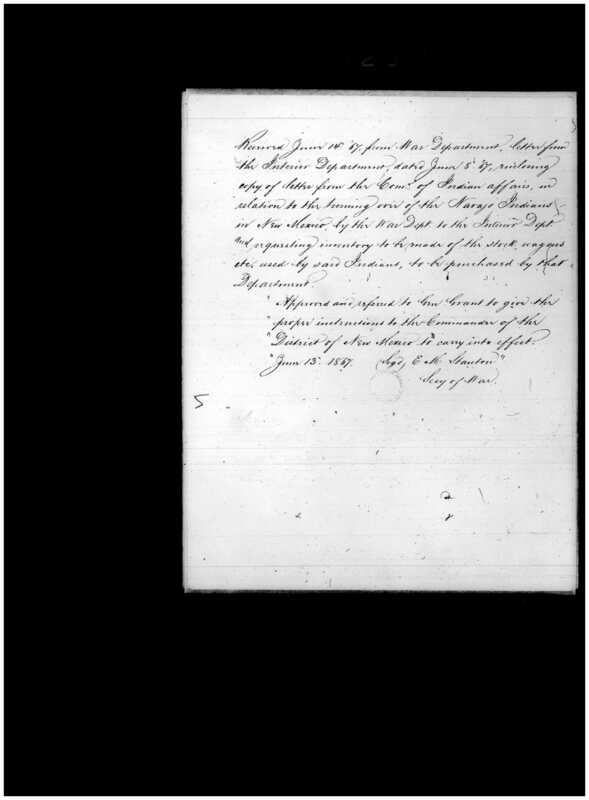 Received June 14 '67, from War Department, letter from
the Interior Department, dated June 8 '67, enclosing
copy of letter from the Comr. of Indian affairs, in
relation to the turning over of the Navajo Indians
in New Mexico, by the War Dept. to the Interior Dept
and requesting inventory to be made of the stock, wagons
etc. used by said Indians, to be purchased by that
Department.
" Approved and referred to Gen Grant to give the
" proper instructions to the Commander of the
" District of New Mexico to carry into effect.
" June 13. 1867. (Sgd) E M. Stanton"
Secy of War.